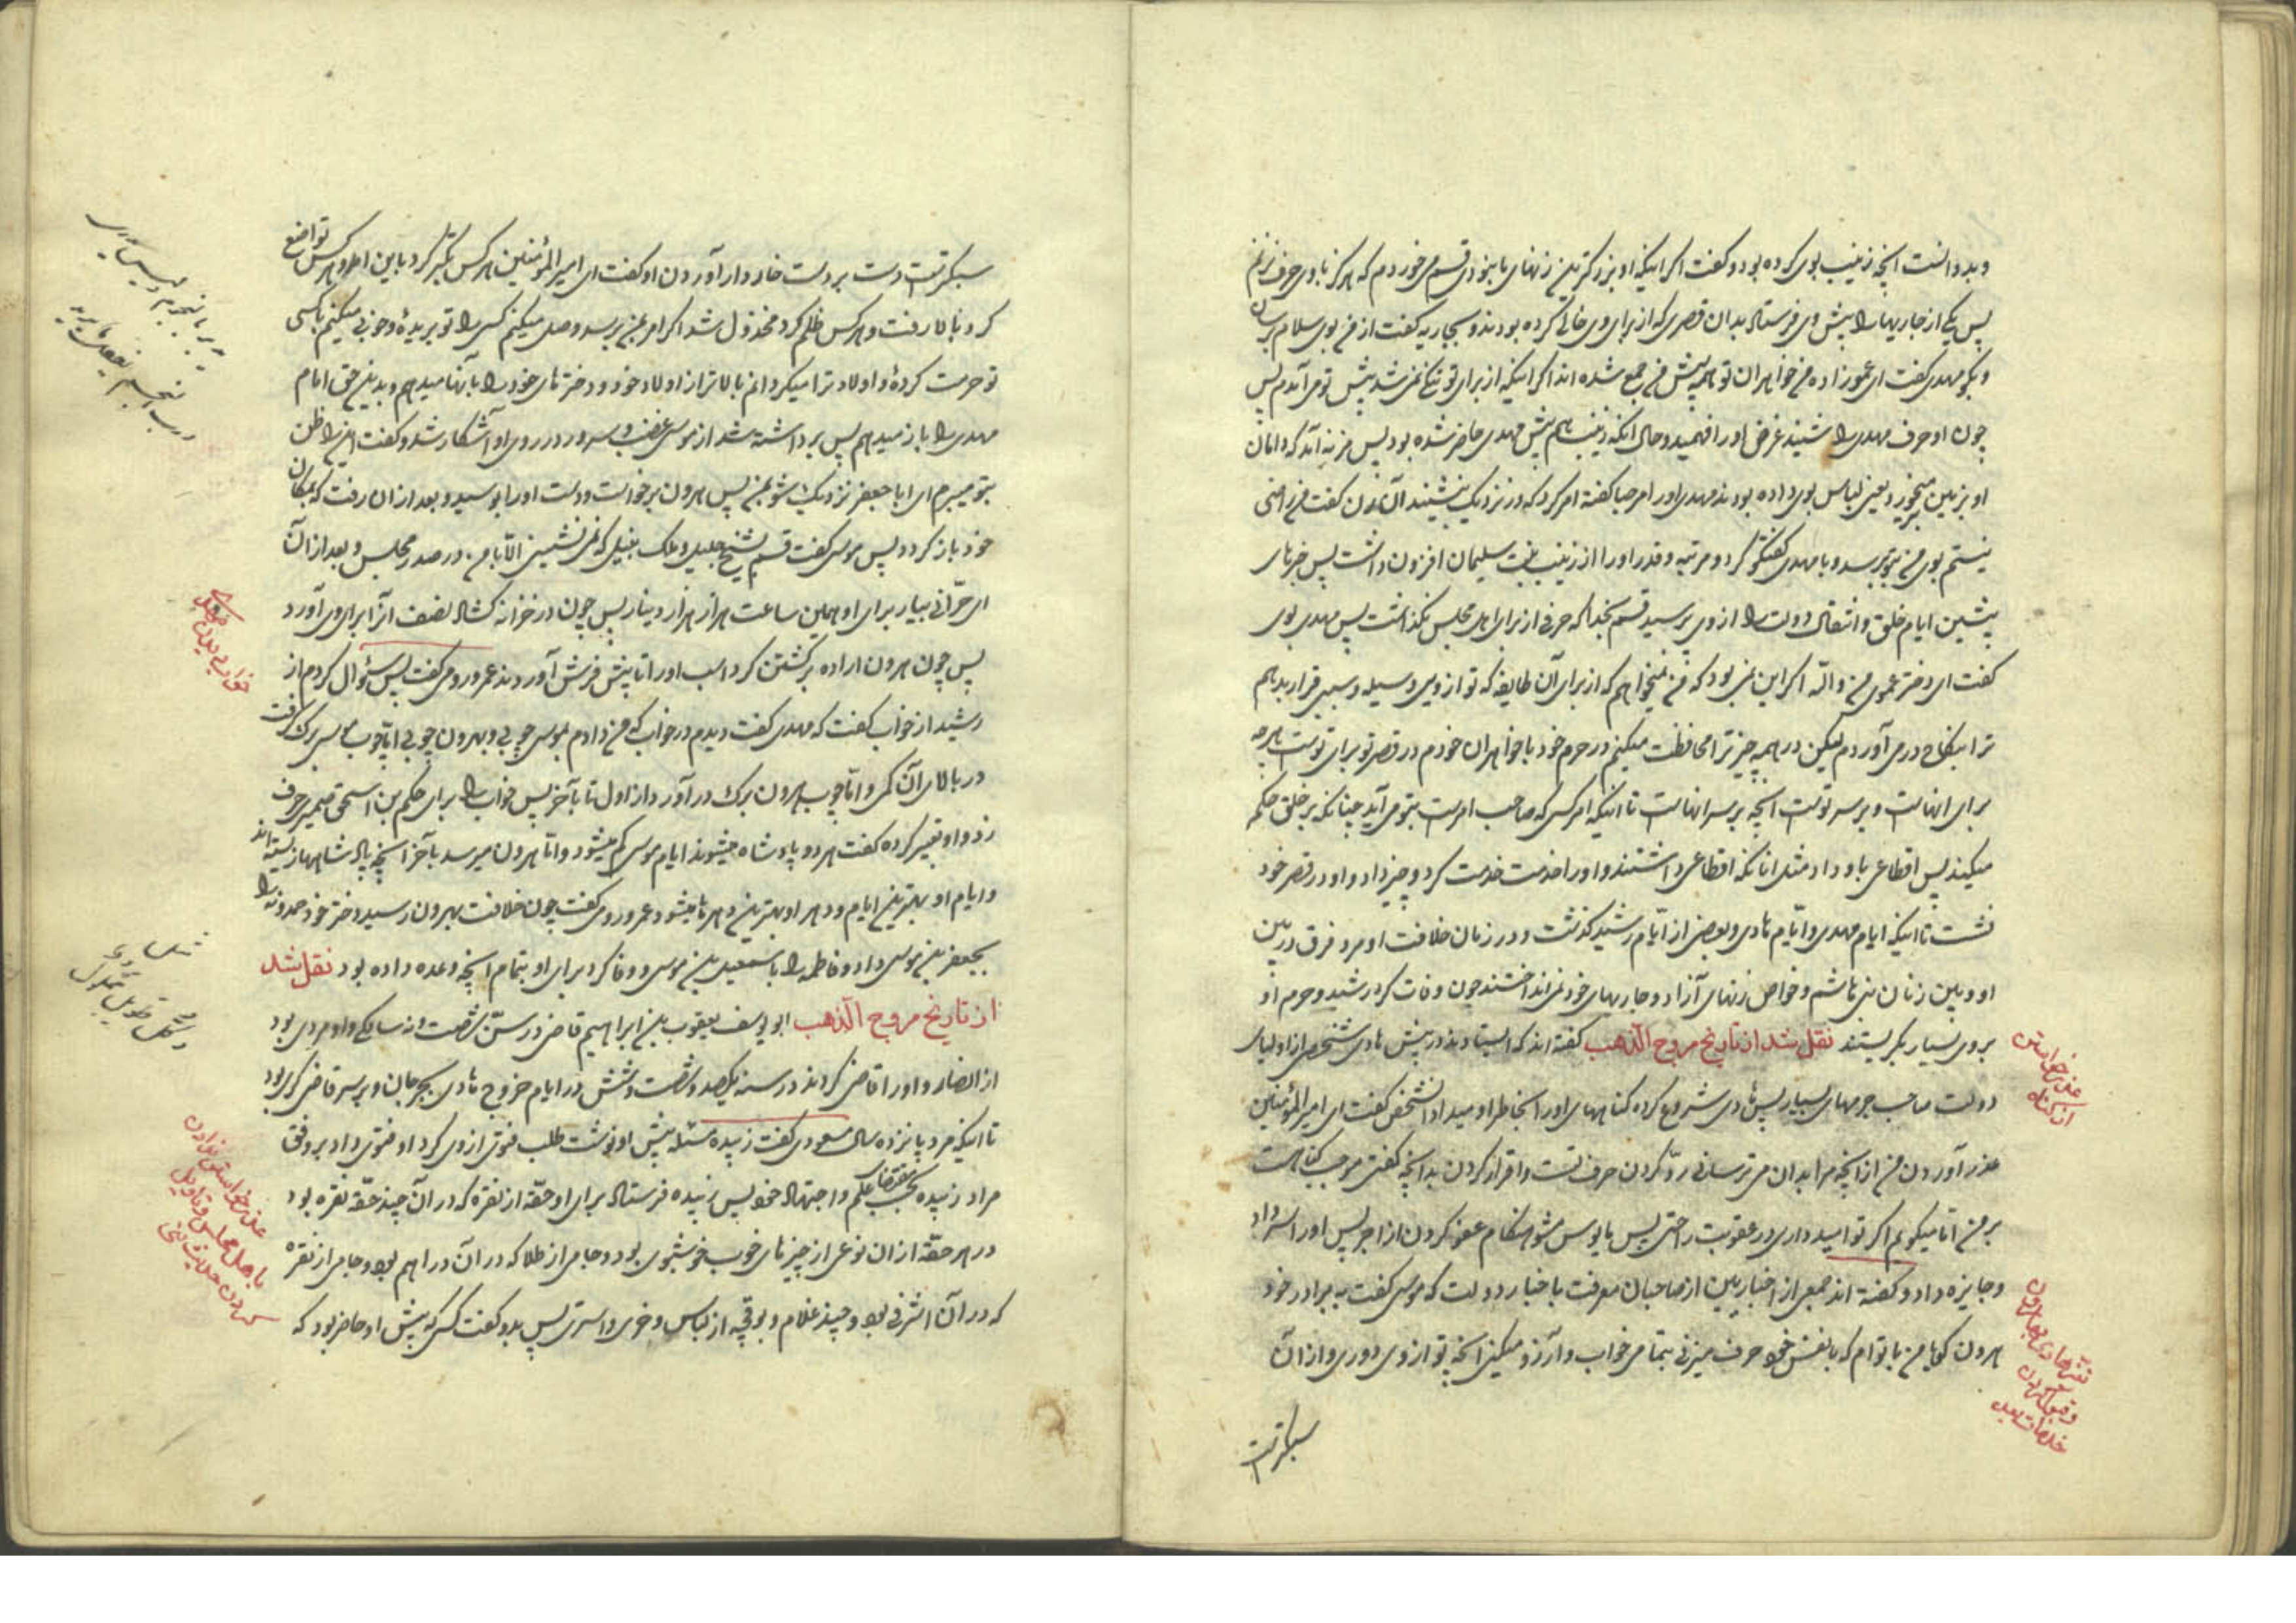 و بد دانست انچه زینب بوی کرده بود و کفت اکر اینکه او بزرکترین زنهای ما نبودی قسم میخوردم که هرکز با وی حرف نزنم
پس یکی از جاریها را پیش وی فرستاد بدان قصری که از برای وی خالی کرده بودند و بجاریه کفت از من بوی سلام برسان
و بکو مهدی کفت ای عموزاده من خواهران تو همه پیش من جمع شده اند اکر اینکه از برای تو ننک نمی شد پیش تو می آمدم پس
چون او حرف مهدی را شنید غرض او را فهمید و حال انکه زینب هم پیش مهدی حاضر شده بود پس مزنه آمد که دامان
او بزمین میخورد یعنی لباس بوی داده بودند مهدی او را مرحبا کفته امر کرد که در نزدیک بنشیند آن زن کفت من راضی
نیستم بوی من بتو برسد و با مهدی کفتکو کرد و مرتبه و قدر او را از زینب بنت سلیمان افزون داشت پس خبرهای
پیشین ایام خلق و انتقال دولت را از وی پرسید قسم بخدا که حرفی از برای اهل مجلس نکذاشت پس مهدی بوی
کفت ای دختر عموی من و الله اکر این نمی بود که من نمیخواهم که از برای آن طایفه که تو از ویی وسیله و سببی قرار بدهم
ترا بنکاح در می آوردم لیکن در همه چیز ترا محافظت میکنم در حرم خود با خواهران خودم در قصر تو برای توست هرچه
برای انهاست و بر سر توست انچه بر سر انهاست تا اینکه امر کسی که صاحب امرست بتو می آید چنانکه بر خلق حکم
میکند پس اقطاعی باو داد مثل انانکه اقطاعی داشتند و او را خدمت خدمت کرد و چیز داد و او در قصر خود
نشست تا اینکه ایام مهدی و ایّام هادی و بعضی از ایّام رشید کذشت و در زمان خلافت او مرد فرق در بین
او و بین زنان بنی هاشم و خواص زنهای آزاد و جاریهای خود نمی انداختند چون وفات کرد رشید و حرم او
بر وی بسیار بکریستند نقل شد از تاریخ مروج الذهب کفته اند که ایستادند در پیش هادی شخصی از اولیای
دولت صاحب جرمهای بسیار پس هادی شروع کرده کناههای او را بخاطر او میداد آنشخص کفت ای امیر المؤمنین
عذر آوردن من از انچه مرا بدان می ترسانی ردّ کردن حرف تست و اقرار کردن بدانچه کفتی موجب کناهست
بر من اما میکویم اکر تو امید داری در عقوبت راحتی پس مایوس مشو هنکام عفو کردن از اجر پس او را سر داد
و جایزه داد و کفته اند جمعی از اخباریین از صاحبان معرفت باخبار دولت که موسی کفت به برادر خود
هرون کویا من با توام که با نفس خود حرف میزنی بتمامی خواب و آرزو میکنی انچه تو از وی دوری و از آن
سبکترست
عذرخواستن
از کناه
سبکترست دست بر دست خار دار آوردن او کفت ای امیر المؤمنین هر کس تکبّر کرد باین افتاد و هر کس تواضع
کرد بالا رفت و هر کس ظلم کرد مخذول شد اکر امر بمن برسد وصل میکنم کسی را تو بریدهٔ و خوبی میکنم با کسی
تو حرمت کردهٔ و اولاد ترا میکردانم بالاتر از اولاد خود و دخترهای خود را بآنها میدهم و بدین حق امام
مهدی را باز میدهم پس برداشته شد از موسی غضب و سرور در روی او آشکار شد و کفت این را ظن
بتو میبرم ای ابا جعفر نزدیک شو بمن پس هرون برخواست و دست او را بوسید و بعد از ان رفت که بمکان
خود باز کردد پس موسی کفت قسم بشیخ جلیل و ملک نبیل که نمی نشینی الّا با من در صدر مجلس و بعد از آن
ای حرّانی بیار برای او همین ساعت هزار هزار دینار پس چون در خزانه کشاد نصف آنرا برای وی آورد
پس چون هرون اراده برکشتن کرد اسب او را تا پیش فرش آوردند عمرو رومی کفت پس سؤال کردم از
رشید از خواب کفت که مهدی کفت دیدم در خواب که من دادم بموسی چوبی و بهرون چوبی اما چوب موسی برک کرفت
در بالای آن کمی و امّا چوب هرون برک در آورد از اول تا بآخر پس خواب را برای حکم بن اسحق صیمری حرف
زد و او تعبیر کرده کفت هر دو پادشاه میشوند ایام موسی کم میشود و امّا هرون میرسد بآخر انچه پادشاهها زیسته اند
و ایام او بهترین ایام و دهر او بهترین دهرها میشود عمرو رومی کفت چون خلافت بهرون رسید دختر خود حمدونه را
بجعفر بن موسی داد و فاطمه را باسمعیل بن موسی و وفا کرد برای او بتمام انچه وعده داده بود نقل شد
از تاریخ مروج الذهب ابو یوسف یعقوب بن ابراهیم قاضی در سنّ شصت و نه سالکی و او مردی بود
از انصار و او را قاضی کردند در سنه یکصد و شصت و شش در ایام خروج هادی بجرجان و بر سر قاضی کری بود
تا اینکه مرد پانزده سال مسعودی کفت زبیده مسئله پیش او نوشت طلب فتوی از وی کرد او فتوی داد بر وفق
مراد زبیده بحسب مقتضای علم و اجتهاد خود پس زبیده فرستاد برای او حقّه از نقره که در آن چند حقّه نقره بود
در هر حقّه از ان نوعی از چیزهای خوب خوشبوی بود و جامی از طلا که در آن دراهم بود و جامی از نقره
که در آن اشرفی بود و چند غلام و بوقچه از لباس و خری و استری پس بدو کفت کسی که پیش او حاضر بود که